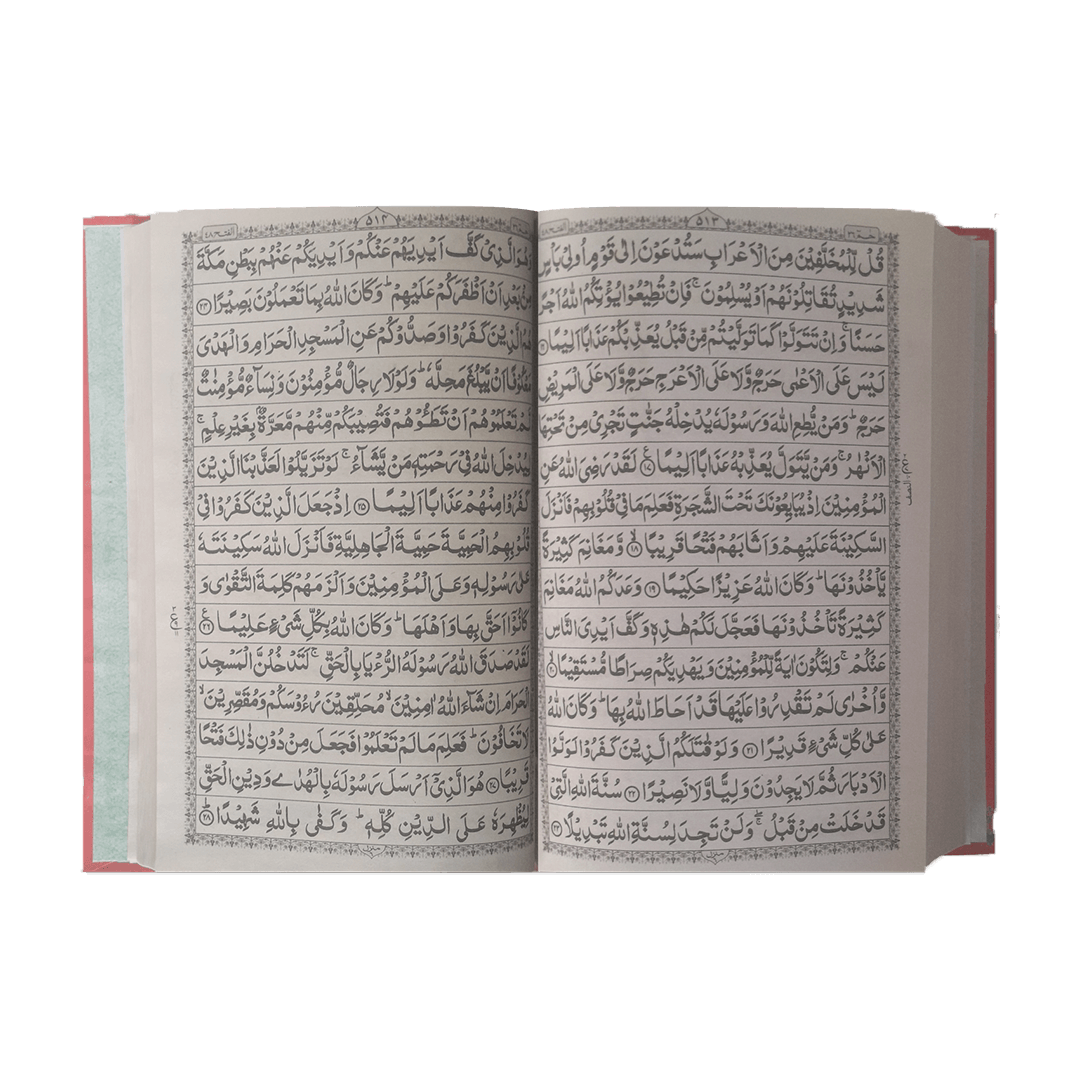 حٰمٓ ٢٦
٥١٣
الفتح ٤٨
قُلْ لِّلْمُخَلَّفِيْنَ مِنَ الْاَعْرَابِ سَتُدْعَوْنَ اِلٰى قَوْمٍ اُولِيْ بَاْسٍ
شَدِيْدٍ تُقَاتِلُوْنَهُمْ اَوْ يُسْلِمُوْنَ ۚ فَاِنْ تُطِيْعُوْا يُؤْتِكُمُ اللّٰهُ اَجْرًا
حَسَنًا ۚ وَاِنْ تَتَوَلَّوْا كَمَا تَوَلَّيْتُمْ مِّنْ قَبْلُ يُعَذِّبْكُمْ عَذَابًا اَلِيْمًا
لَيْسَ عَلَى الْاَعْمٰى حَرَجٌ وَّلَا عَلَى الْاَعْرَجِ حَرَجٌ وَّلَا عَلَى الْمَرِيْضِ
حَرَجٌ ؕ وَمَنْ يُّطِعِ اللّٰهَ وَرَسُوْلَهٗ يُدْخِلْهُ جَنّٰتٍ تَجْرِيْ مِنْ تَحْتِهَا
الْاَنْهٰرُ ۚ وَمَنْ يَّتَوَلَّ يُعَذِّبْهُ عَذَابًا اَلِيْمًا ﴿١٧﴾ لَقَدْ رَضِيَ اللّٰهُ عَنِ
الْمُؤْمِنِيْنَ اِذْ يُبَايِعُوْنَكَ تَحْتَ الشَّجَرَةِ فَعَلِمَ مَا فِيْ قُلُوْبِهِمْ فَاَنْزَلَ
السَّكِيْنَةَ عَلَيْهِمْ وَاَثَابَهُمْ فَتْحًا قَرِيْبًا ﴿١٨﴾ وَّمَغَانِمَ كَثِيْرَةً
يَّاْخُذُوْنَهَا ؕ وَكَانَ اللّٰهُ عَزِيْزًا حَكِيْمًا ﴿١٩﴾ وَعَدَكُمُ اللّٰهُ مَغَانِمَ
كَثِيْرَةً تَاْخُذُوْنَهَا فَعَجَّلَ لَكُمْ هٰذِهٖ وَكَفَّ اَيْدِيَ النَّاسِ
عَنْكُمْ ۚ وَلِتَكُوْنَ اٰيَةً لِّلْمُؤْمِنِيْنَ وَيَهْدِيَكُمْ صِرَاطًا مُّسْتَقِيْمًا ﴿٢٠﴾
وَّاُخْرٰى لَمْ تَقْدِرُوْا عَلَيْهَا قَدْ اَحَاطَ اللّٰهُ بِهَا ؕ وَكَانَ اللّٰهُ
عَلٰى كُلِّ شَيْءٍ قَدِيْرًا ﴿٢١﴾ وَلَوْ قٰتَلَكُمُ الَّذِيْنَ كَفَرُوْا لَوَلَّوُا
الْاَدْبَارَ ثُمَّ لَا يَجِدُوْنَ وَلِيًّا وَّلَا نَصِيْرًا ﴿٢٢﴾ سُنَّةَ اللّٰهِ الَّتِيْ
قَدْ خَلَتْ مِنْ قَبْلُ ۖۚ وَلَنْ تَجِدَ لِسُنَّةِ اللّٰهِ تَبْدِيْلًا ﴿٢٣﴾
٥١٤
الفتح ٤٨
وَهُوَ الَّذِيْ كَفَّ اَيْدِيَهُمْ عَنْكُمْ وَاَيْدِيَكُمْ عَنْهُمْ بِبَطْنِ مَكَّةَ
مِنْۢ بَعْدِ اَنْ اَظْفَرَكُمْ عَلَيْهِمْ ؕ وَكَانَ اللّٰهُ بِمَا تَعْمَلُوْنَ بَصِيْرًا ﴿٢٤﴾
هُمُ الَّذِيْنَ كَفَرُوْا وَصَدُّوْكُمْ عَنِ الْمَسْجِدِ الْحَرَامِ وَالْهَدْيَ
مَعْكُوْفًا اَنْ يَّبْلُغَ مَحِلَّهٗ ؕ وَلَوْلَا رِجَالٌ مُّؤْمِنُوْنَ وَنِسَآءٌ مُّؤْمِنٰتٌ
لَّمْ تَعْلَمُوْهُمْ اَنْ تَطَـُٔوْهُمْ فَتُصِيْبَكُمْ مِّنْهُمْ مَّعَرَّةٌۢ بِغَيْرِ عِلْمٍ ۚ
لِيُدْخِلَ اللّٰهُ فِيْ رَحْمَتِهٖ مَنْ يَّشَآءُ ۚ لَوْ تَزَيَّلُوْا لَعَذَّبْنَا الَّذِيْنَ
كَفَرُوْا مِنْهُمْ عَذَابًا اَلِيْمًا ﴿٢٥﴾ اِذْ جَعَلَ الَّذِيْنَ كَفَرُوْا فِيْ
قُلُوْبِهِمُ الْحَمِيَّةَ حَمِيَّةَ الْجَاهِلِيَّةِ فَاَنْزَلَ اللّٰهُ سَكِيْنَتَهٗ
عَلٰى رَسُوْلِهٖ وَعَلَى الْمُؤْمِنِيْنَ وَاَلْزَمَهُمْ كَلِمَةَ التَّقْوٰى وَ
كَانُوْٓا اَحَقَّ بِهَا وَاَهْلَهَا ؕ وَكَانَ اللّٰهُ بِكُلِّ شَيْءٍ عَلِيْمًا ﴿٢٦﴾
لَقَدْ صَدَقَ اللّٰهُ رَسُوْلَهُ الرُّءْيَا بِالْحَقِّ ۚ لَتَدْخُلُنَّ الْمَسْجِدَ
الْحَرَامَ اِنْ شَآءَ اللّٰهُ اٰمِنِيْنَ ۙ مُحَلِّقِيْنَ رُءُوْسَكُمْ وَمُقَصِّرِيْنَ ۙ
لَا تَخَافُوْنَ ؕ فَعَلِمَ مَا لَمْ تَعْلَمُوْا فَجَعَلَ مِنْ دُوْنِ ذٰلِكَ فَتْحًا
قَرِيْبًا ﴿٢٧﴾ هُوَ الَّذِيْٓ اَرْسَلَ رَسُوْلَهٗ بِالْهُدٰى وَدِيْنِ الْحَقِّ
لِيُظْهِرَهٗ عَلَى الدِّيْنِ كُلِّهٖ ؕ وَكَفٰى بِاللّٰهِ شَهِيْدًا ﴿٢٨﴾